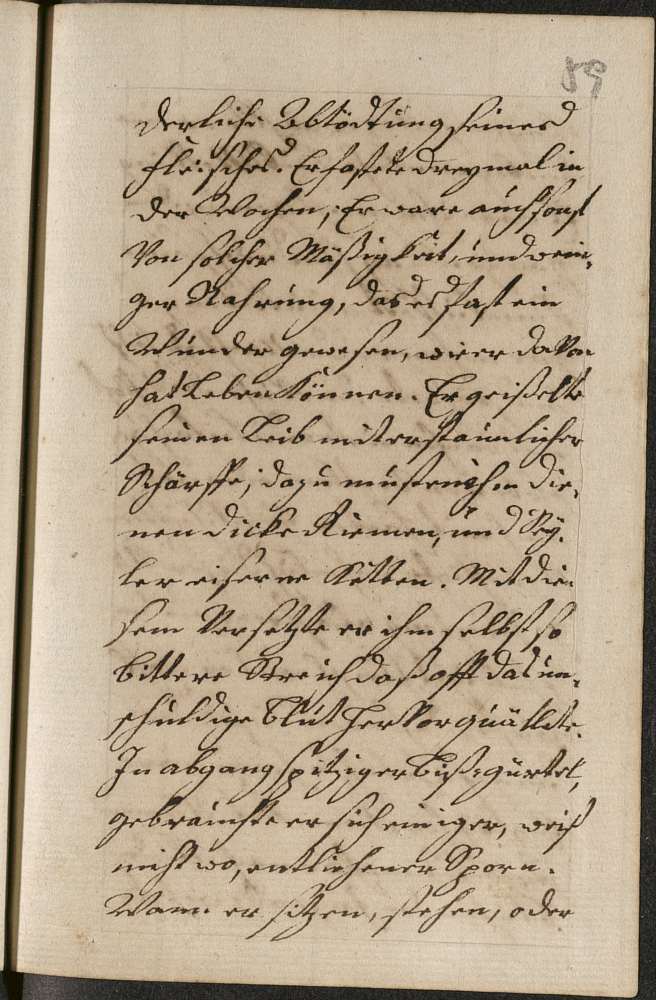 89
derliche Abtödtung seines
Fleisches. Er fastete dreymal in
der Wochen; Er ware auch sonst
Von solcher Mäßigkeit, und wein,
ger Nahrung, das es fast ein
Wunder gewesen, wie er davon
hat Leben können. Er geißelte
seinen Leib mit erstaunlicher
Schärffe; dazu musten ihm die,
nen dicke Riemen, und Sey,
ler eiserne Ketten. Mit die,
sem Versetzte er ihm selbst so
bittere Streich daß offt das un,
schuldige Blut hervor quällte.
In abgang spitziger Bußgürtel,
gebrauchte er sich einiger, weis
nicht wo, entliehener Sporn.
Wann er sitzen, stehen, oder